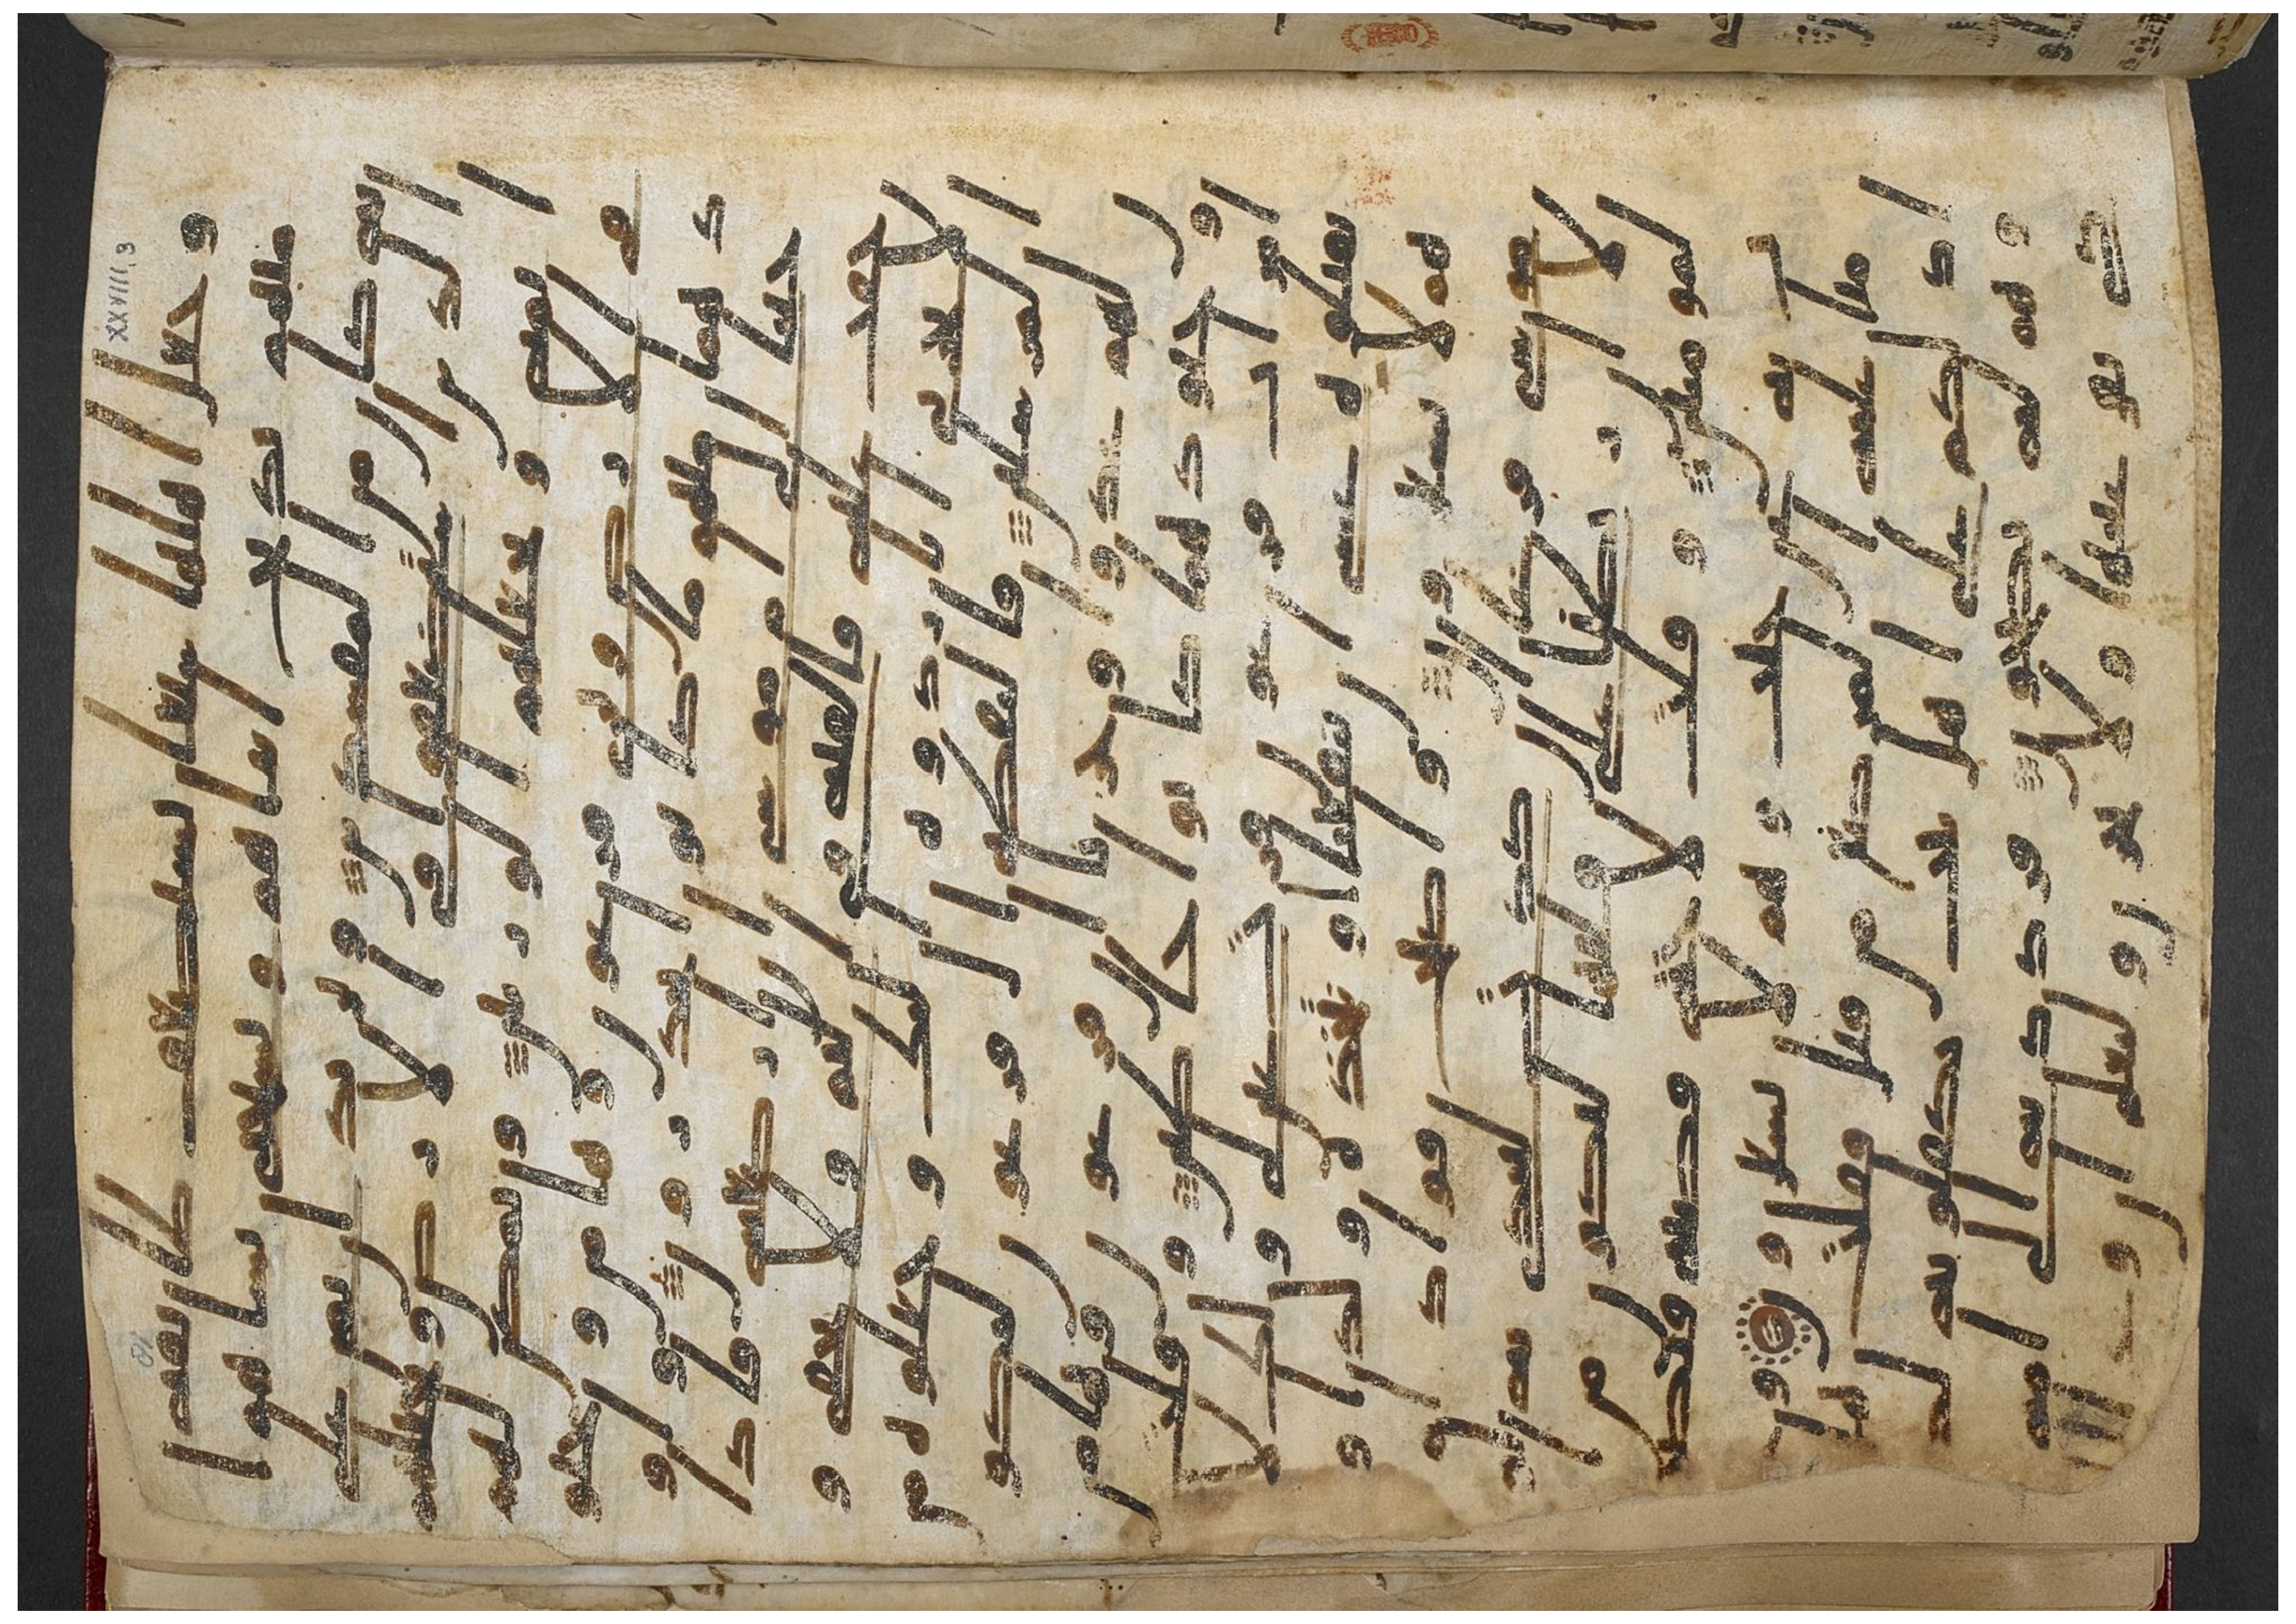 و جعل اهلها شيعا يستضعف طايفه
منهم يذبح ابناهم و يستحى نساهم ا
نه كان من المفسدين و نريد ان نمن
على الذين استضعفوا في الارض و نجعلهم
ايمه و نجعلهم الورثين و نمكن لهم
في الارض و نرى فرعون و همن و جنو
دهما منهم ما كانوا يحذرون و او
حينا الى ام موسى ان ارضعيه فاذا
خفت عليه فالقيه في اليم و لا تخافى و
لا تحزنى انا رادوه اليك و جعلوه من
المرسلين فالتقطه ال فرعون ليكو
ن لهم عدوا و حزنا ان فرعون و همن
و جنودهما كانوا خطين و قالت
امرات فرعون قرت عين لى و لك لا
تقتلوه عسى ان ينفعنا او نتخذه و لدا و
هم لا يشعرون و اصبح فواد ام
موسى فرغا ان كادت لتبدى به
لولا ان ربطنا على قلبها لتكون من
المومنين و قالت لاخته قصيه فبصر
ت به عن جنب و هم لا يشعرون و
حرمنا عليه المراضع من قبل فقالت هل ا
دلكم على اهل بيت يكفلونه لكم
و هم له نصحون فرددنه الى امه
كى تقر عينها و لا تحزن و لتعلم ان و
XXVIII,3